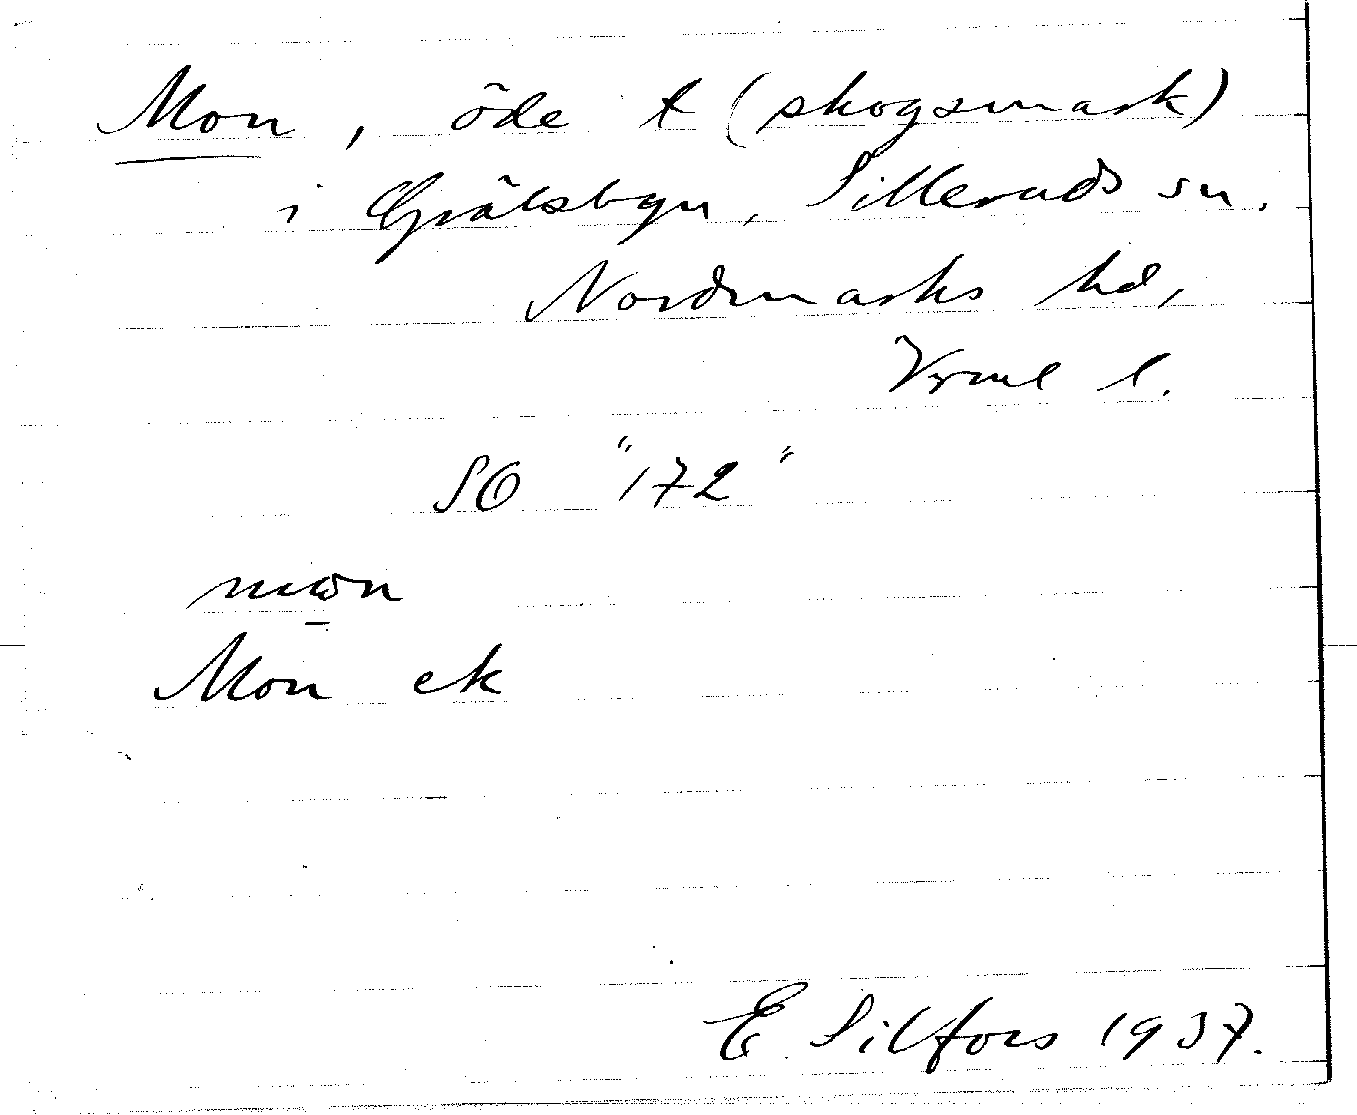 Mon, öde t (skogsmark)
i Grälsbyn, Silleruds sn.
Nordmarks hd,
Vrml l.
SO "172"
Mon ek
E Silfors 1937.